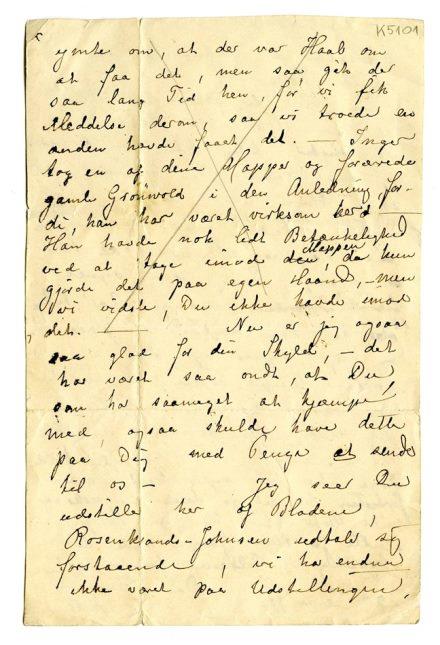 K5101
ymte om, at der var Haab om
at faa det, men saa gik der
saa lang Tid hen, før vi fik
Meddelse derom, saa vi troede en
anden havde faaet det. — Inger
tog en af dine Mapper og forærede
gamle Grønvold i den Anledning, for-
di, han har været virksom
Han havde nok lidt Betænkelighed
ved at tage imod den, Mappen, da hun
gjorde det paa egen Haand, — men
vi vidste, Du ikke havde imod
det. — Nu er jeg ogsaa
saa glad for din Skyld, — det
har været saa ondt, at Du
som har saameget at kjæmpe
med, ogsaa skulde have dette
paa Dig med Penge at sende
til os — Jeg seer Du
udstiller her af Bladene,
Rosenkrands-Johnsen udtale sig
forstaaende, vi ha endnu
ikke været paa Udstillingen,